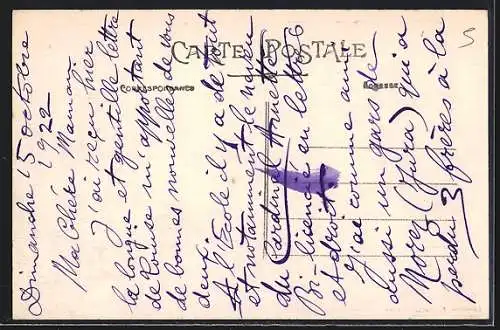 CARTE POSTALE
CORRESPONDANCE
ADRESSE
Dimanche 15 octobre
1922
Ma Chère Maman
J'ai reçu hier
la longue et gentille lettre
de Louise m'apportant
de bonnes nouvelles de vous
A l'Ecole il y a de tout
et notamment le neveu
du Cardinal Amette
Bi-licencié en lettres
et droit.
J'ai comme ami
aussi un gars de
Morez (Jura) qui a
perdu 3 frères à la
5